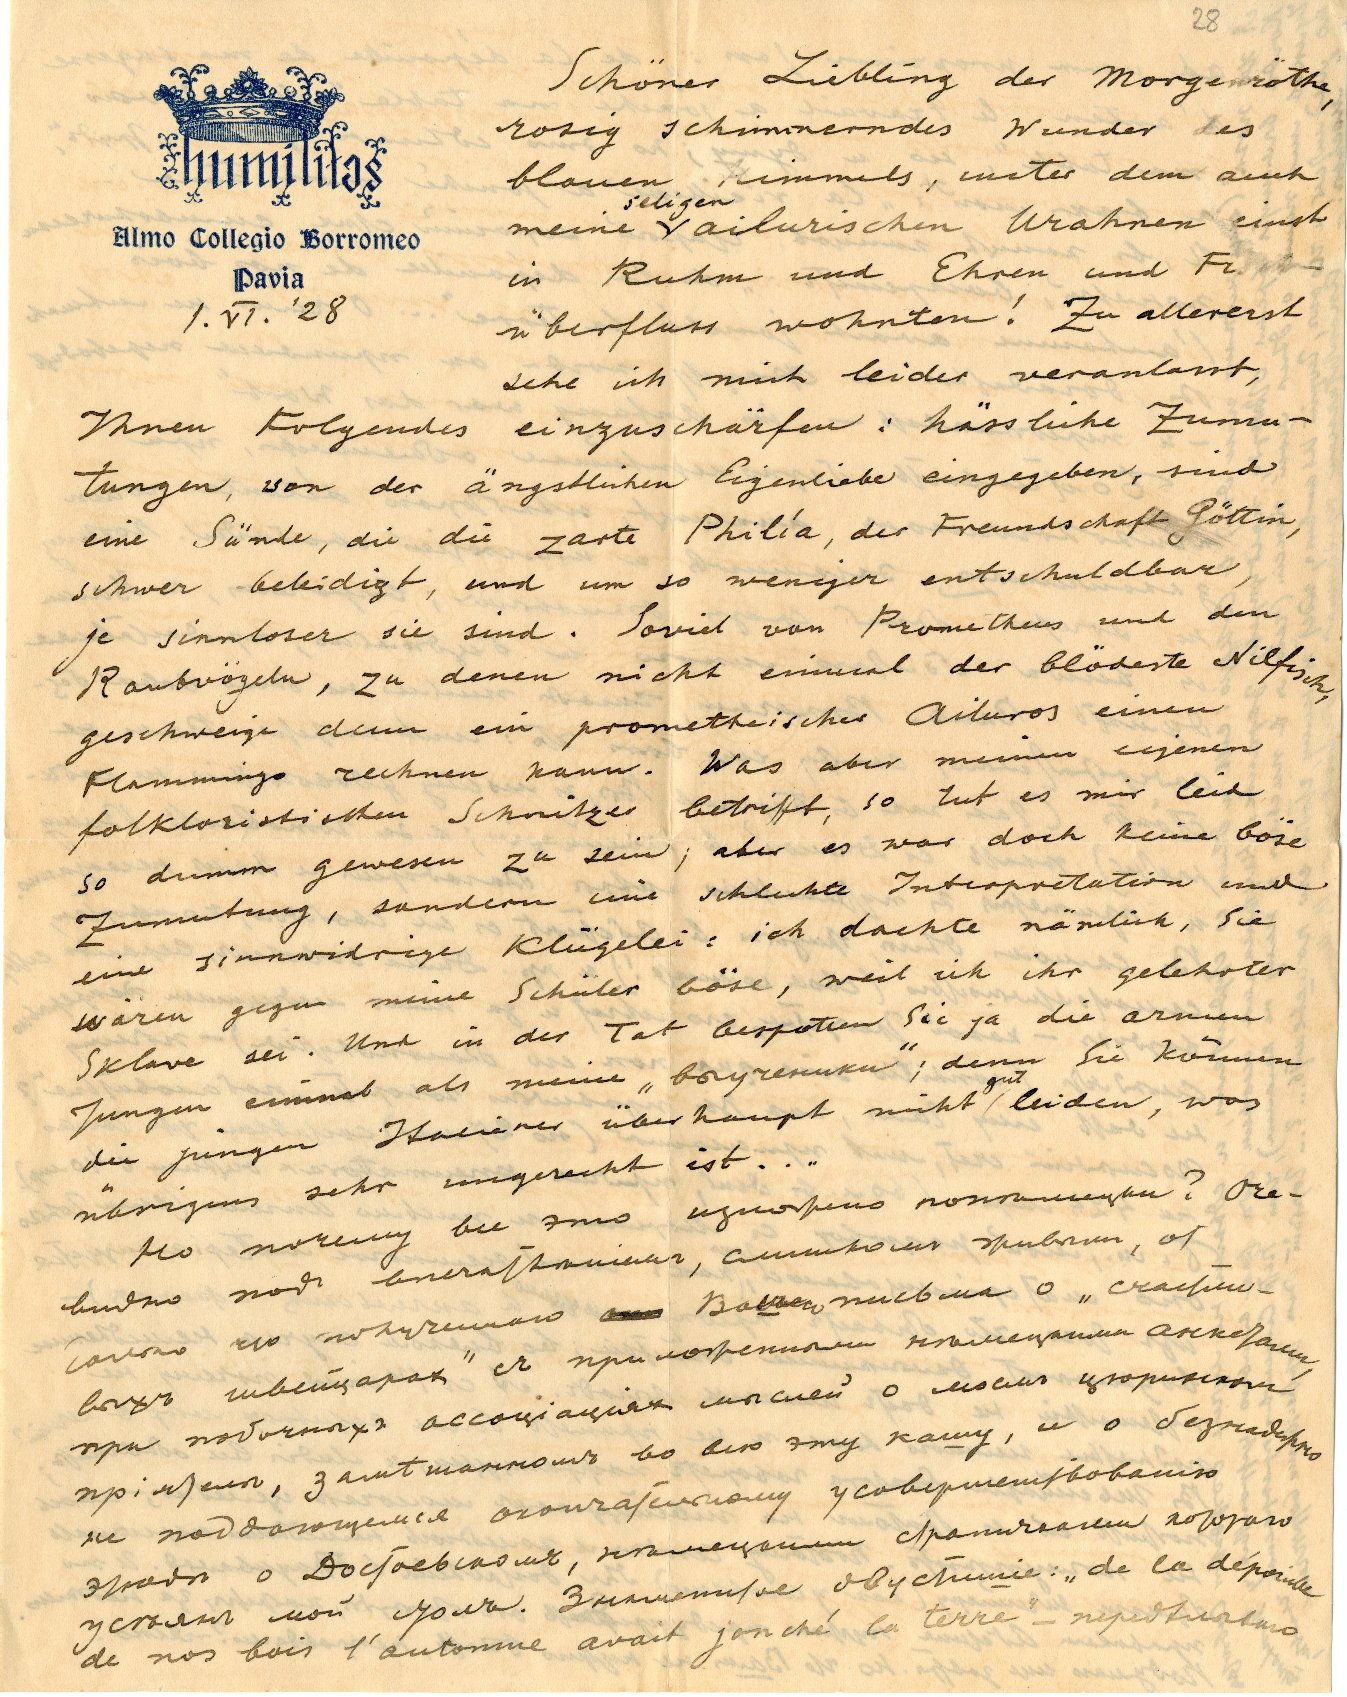 28
humilitas
Almo Collegio Borromeo
Pavia
1. VI. '28
Schöner Liebling der Morgenröthe,
rosig schimmerndes Wunder des
blauen Himmels, unter dem auch
meine seligen ailurischen Urahnen einst
in Ruhm und Ehren und
überfluss wohnten! Zu allererst
sehe ich mich leider veranlasst,
Ihnen Folgendes einzuschärfen: hässliche Zumu-
tungen, von der ängstlichen Eigenliebe eingegeben, sind
eine Sünde, die die zarte Philía, der Freundschaft Göttin,
schwer beleidigt, und um so weniger entschuldbar,
je sinnloser sie sind. Soviel von Prometheus und den
Raubvögeln, zu denen nicht einmal der blödeste Nilfisch,
geschweige denn ein prometheischer Ailuros einen
Flammingo rechnen kann. Was aber meinen eigenen
folkloristischen Schnitzer betrifft, so tut es mir leid
so dumm gewesen zu sein; aber es war doch keine böse
Zumutung, sondern eine schlechte Interpretation und
eine sinnwidrige Klügelei: ich dachte nämlich, Sie
wären gegen meine Schüler böse, weil ich ihr gelehrter
Sklave sei. Und in der Tat bespotten Sie ja die armen
Jungen einmal als meine „выученики“; denn Sie können
die jungen Italiener überhaupt nicht gut leiden, was
übrigens sehr ungerecht ist...
Но почему все это изложено понѣмецки? Оче-
видно подъ впечатлѣнiемъ, слишкомъ яркимъ, от
только что полученнаго Вашего письма о „счастли-
выхъ швейцарах“ съ приложенными нѣмецкими анкетами,
при побочныхъ ассоцiацiях мыслей о моемъ цюрихскомъ
прiятелѣ, замѣшанномъ во всю эту кашу, и о безнадежно
не поддающемся окончательному усовершенствованiю
этюдѣ о Достоевскомъ, нѣмецкими страничками котораго
усѣянъ мой столъ. Знаменитое двустишiе: „de la dépouille
de nos bois l'automne avait jonché la terre“ –